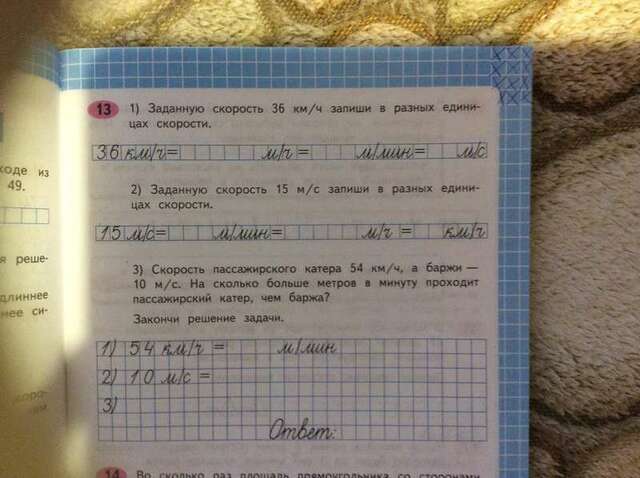 13 1) Заданную скорость 36 км/ч запиши в разных едини-
цах скорости.
36 км/ч= м/ч= м/мин= м/с
2) Заданную скорость 15 м/с запиши в разных едини-
цах скорости.
15 м/с= м/мин= м/ч = км/ч
3) Скорость пассажирского катера 54 км/ч, а баржи —
10 м/с. На сколько больше метров в минуту проходит
пассажирский катер, чем баржа?
Закончи решение задачи.
1) 54 км/ч = м/мин
2) 10 м/с =
3)
Ответ:
14 Во сколько раз площадь прямоугольника со сторонами
ходе из
49.
я реше-
длиннее
нее си-